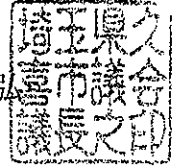 埼玉県久
喜市議会
議長之印
弘